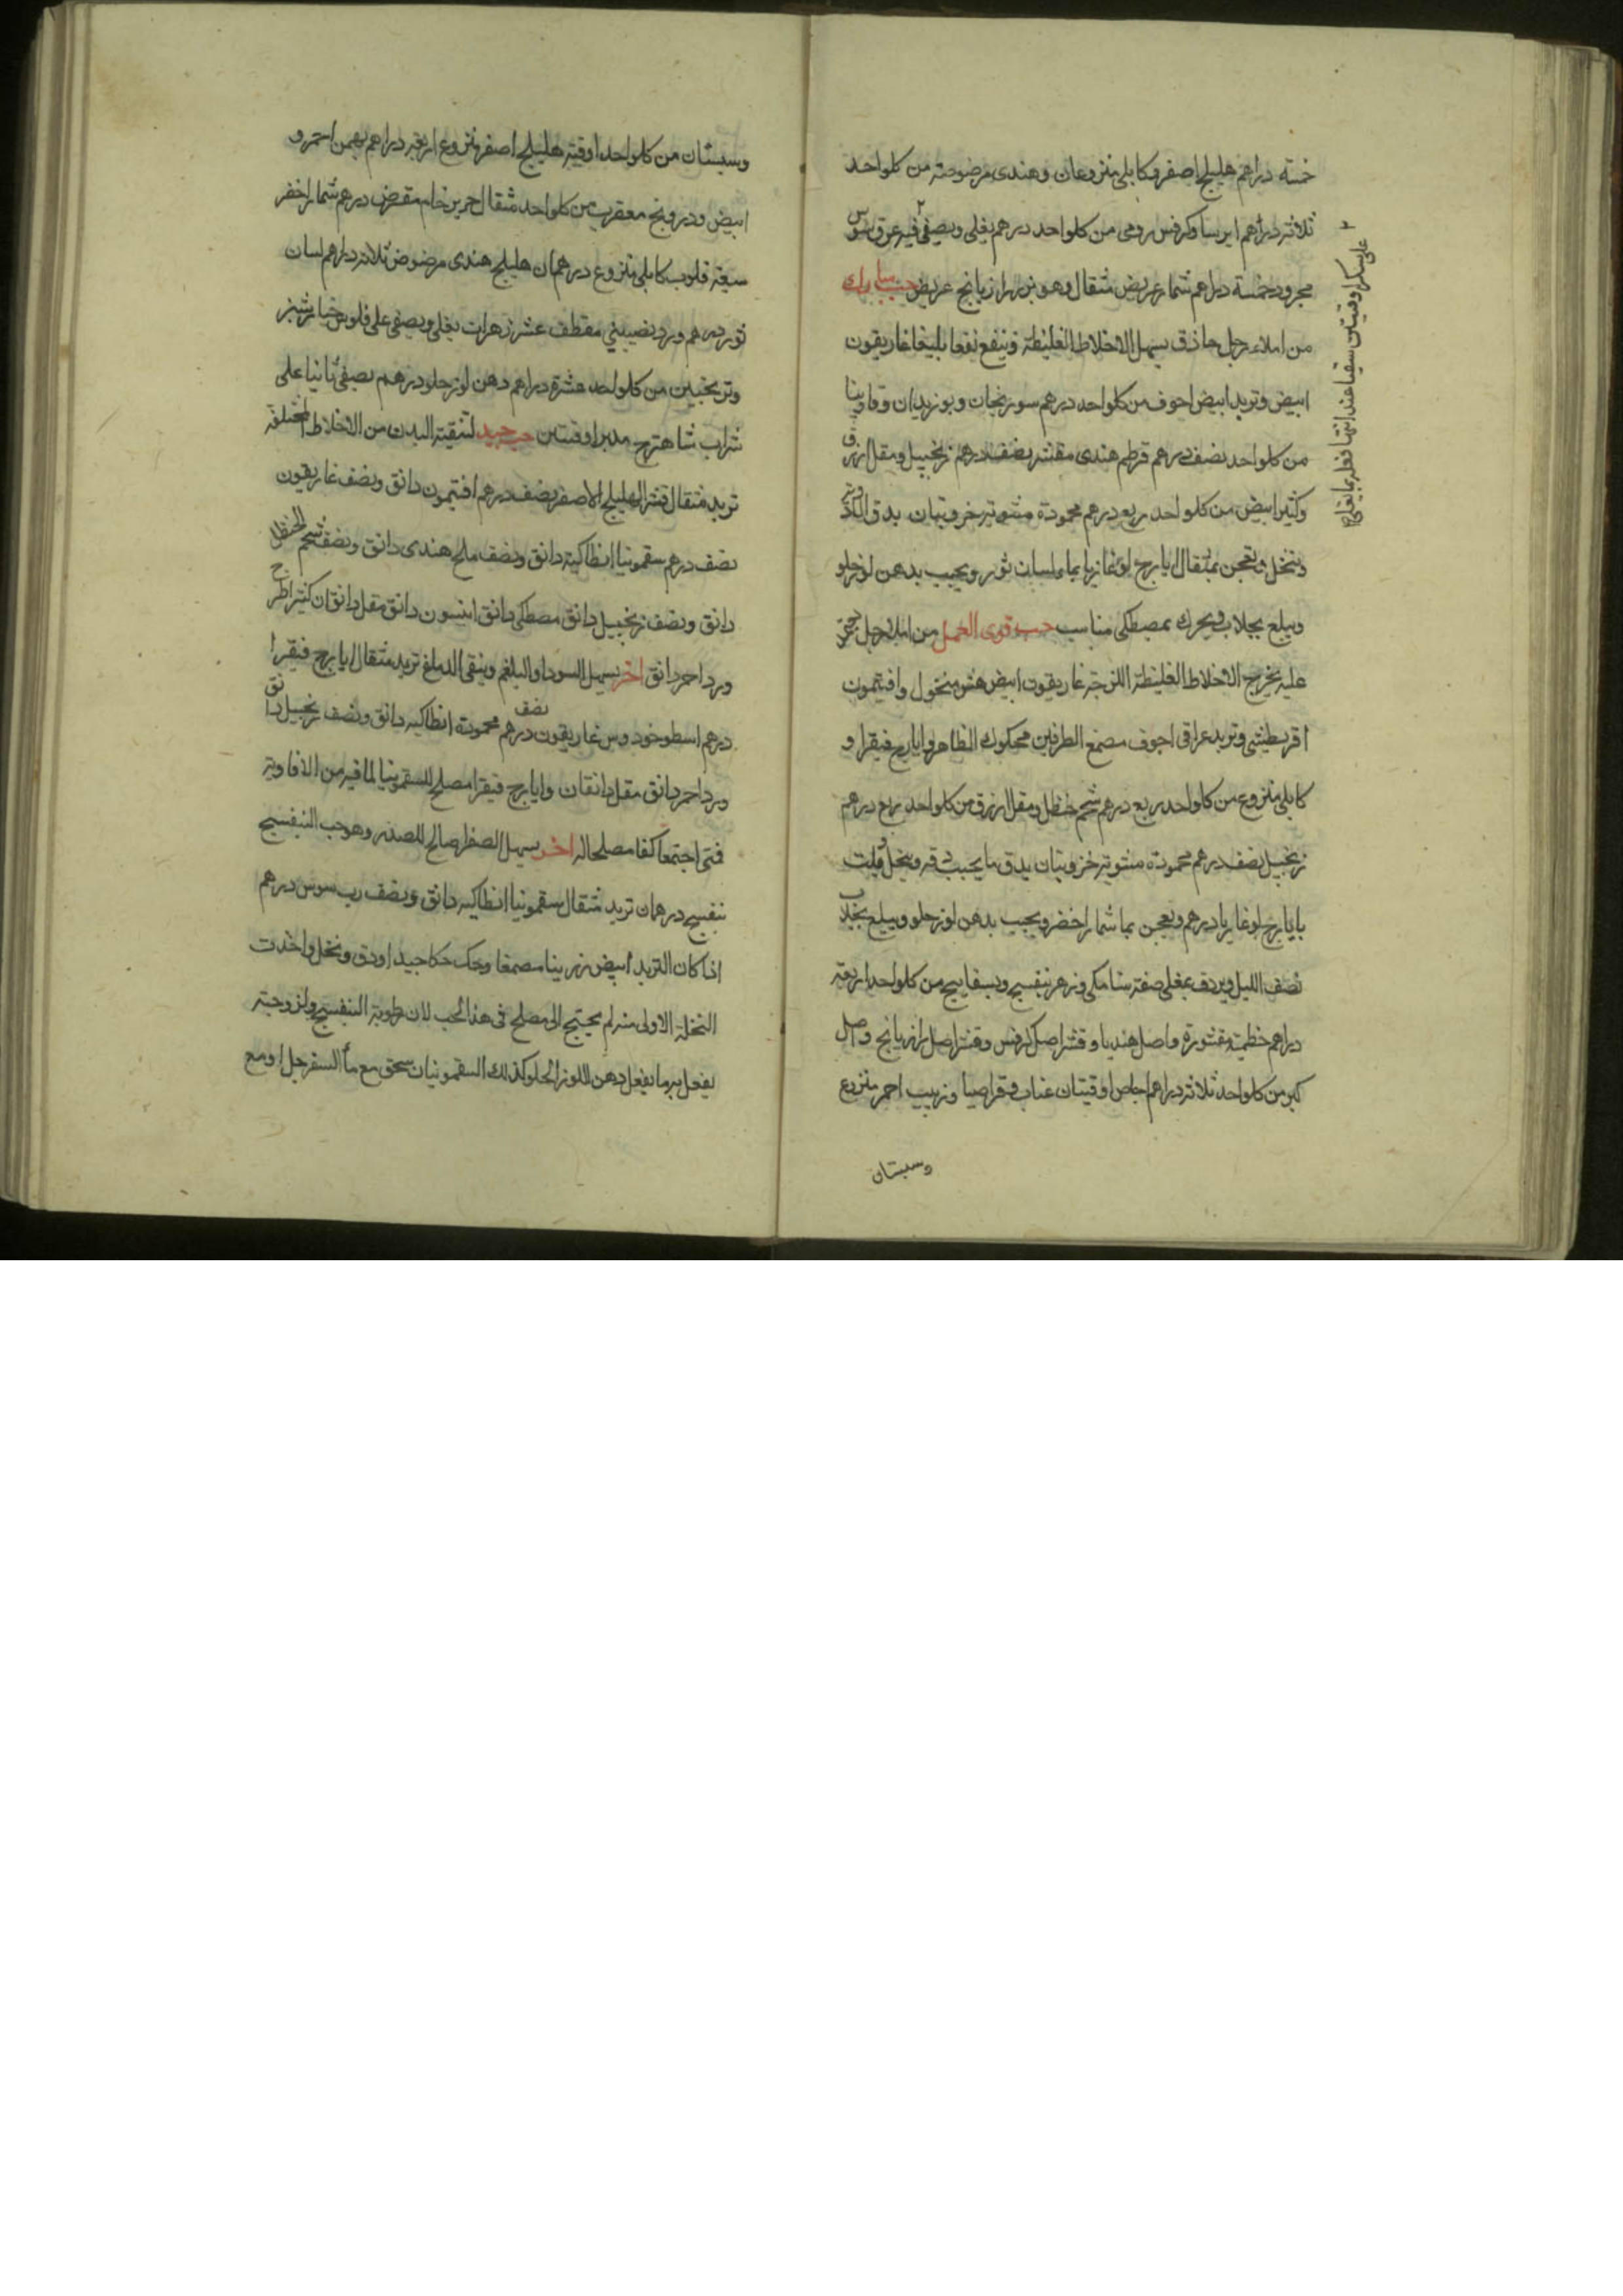 خمسة دراهم هليلج اصفر وكابلى منزوعان وهندى مرضوضة من كلواحد
ثلاثة دراهم ايرسا وكرفس رومى من كلواحد درهم يغلى ويصفى فيه عرق سوس
مجرود خمسة دراهم شمار عريض مثقال وهو بزر رازيانج عريض حب مبارك
من املاء رجل حاذق يسهل الاخلاط الغليظة وينفع نفعا بليغا غاريقون
ابيض وتربد ابيض اجوف من كلواحد درهم سورنجان وبوزيدان وفاوينا
من كلواحد نصف درهم قرطم هندى مقشر نصف درهم زنجبيل ومقل ازرق
وكثيرا ابيض من كلواحد ربع درهم محمودة مشوية خروبتان يدق الادوية
وينخل ويعجن بمثقال ايارج لوغاذيا بماء لسان ثور ويحبب بدهن لوز حلو
ويبلع بجلاب ويحرك بمصطكى مناسب حب قوى العمل من املاء رجل
عليه يخرج الاخلاط الغليظة اللزجة غاريقون ابيض هش منخول وافتيمون
اقريطيشى وتربد عراقى اجوف مصمغ الطرفين محكوك الظاهر وايارج فيقرا و
كابلى منزوع من كلواحد ربع درهم شحم حنظل ومقل ازرق من كلواحد ربع درهم
زنجبيل نصف درهم محمودة مشوية خروبتان يدق ما يجب دقه وينخل ويلت
بايارج لوغاريا درهم ويعجن بما شمار اخضر ويحبب بدهن لوز حلو ويبلع بجلاب
نصف الليل ويردف بمغلى صفته سنا مكى وزهر بنفسج وبسفايج من كلواحد اربعة
دراهم خطمية مقشورة واصل هندبا وقشر اصل كرفس وقشر اصل رازيانج واصل
كبر من كلواحد ثلاثة دراهم اجاص اوقيتان عناب وقراصيا وزبيب احمر منزوع
وسبستان
على سكر اوقيتين سقيا عند انتها فعله بما يغلى
وسبستان من كلواحد اوقية هليلج اصفر منزوع اربعة دراهم بهمن احمر و
ابيض ودرونج معقرب من كلواحد مثقال حرير خام مقرض درهم شمار اخضر
سبعة قلوب كابلى منزوع درهمان هليلج هندى مرضوض ثلاثة دراهم لسان
ثور درهم ورد نصيبينى مقطف عشر زهرات يغلى ويصفى على فلوس خيارشنبر
وترنجبين من كلواحد عشرة دراهم دهن لوز حلو درهم يصفى ثانيا على
شراب شاهترج مدبر اوقيتين حب جيد لتنقية البدن من الاخلاط المختلفة
تربد مثقال قشر الهليلج الاصفر نصف درهم افتيمون دانق ونصف غاريقون
نصف درهم سقمونيا انطاكية دانق ونصف ملح هندى دانق ونصف شحم الحنظل
دانق ونصف زنجبيل دانق مصطكى دانق انيسون دانق مقل دانقان كثيرا طرح
ورد احمر دانق اخر يسهل السودا والبلغم وينقى الدماغ تربد مثقال ايارج فيقرا
درهم اسطوخودوس غاريقون نصف درهم محمودة انطاكية دانق ونصف زنجبيل دانق
ورد احمر دانق مقل دانقان وايارج فيقرا مصلح للسقمونيا لما فيه من الافاوية
فمتى اجتمعا كفا مصلحا له اخر يسهل الصفرا صالح للصدر وهو حب البنفسج
بنفسج درهمان تربد مثقال سقمونيا انطاكية دانق ونصف رب سوس درهم
اذا كان التربد ابيض رزينا مصمغا وحك حكا جيدا ودق ونخل واخذت
النخلة الاولى منه لم يحتج الى مصلح فى هذا الحب لان رطوبة البنفسج ولزوجته
يفعل به ما يفعل دهن اللوز الحلو كذلك السقمونيا ان سحق مع ماء السفرجل او مع